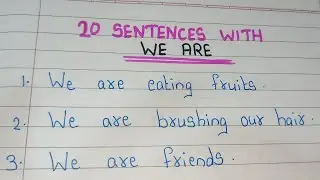 20 SENTENCES WITH
WE ARE
1. We are eating fruits.
2. We are brushing our hair.
3. We are friends.